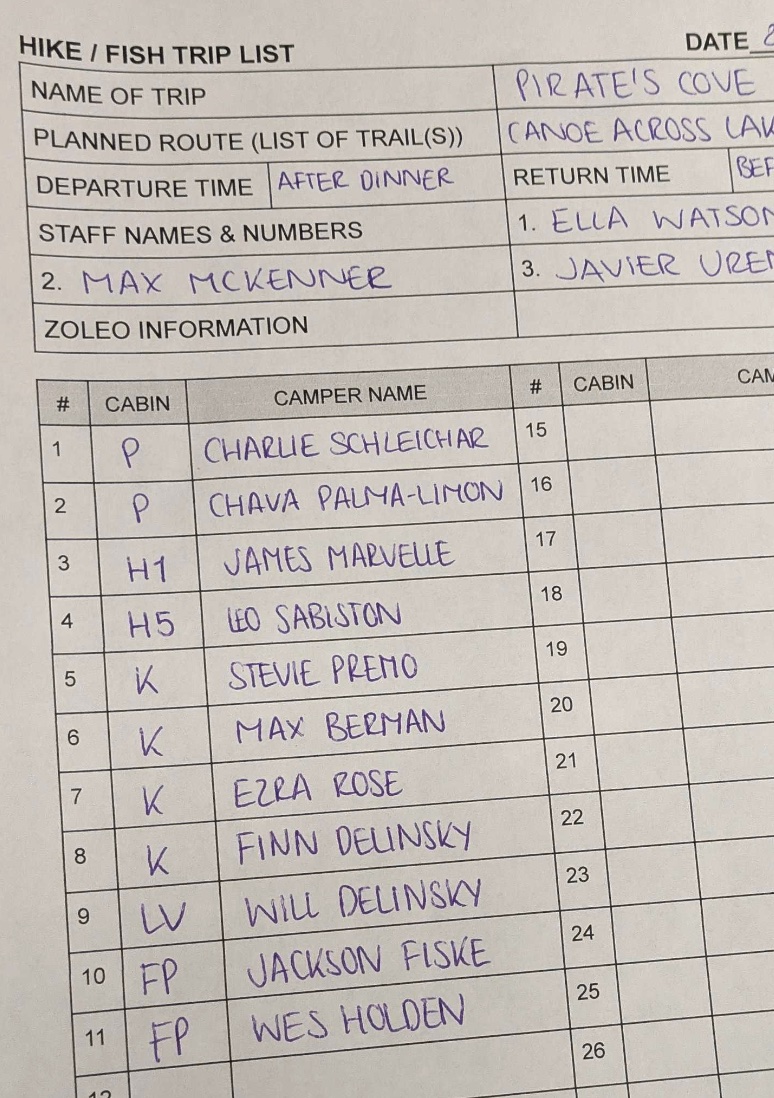 HIKE / FISH TRIP LIST DATE
NAME OF TRIP PIRATE'S COVE
PLANNED ROUTE (LIST OF TRAIL(S)) CANOE ACROSS
DEPARTURE TIME AFTER DINNER RETURN TIME
STAFF NAMES & NUMBERS 1. ELLA WATSON
2. MAX MCKENNER 3. JAVIER
ZOLEO INFORMATION
# CABIN CAMPER NAME # CABIN
1 P CHARLIE SCHLEICHAR 15
2 P CHAVA PALMA-LIMON 16
3 H1 JAMES MARVELLE 17
4 H5 LEO SABISTON 18
5 K STEVIE PREMO 19
6 K MAX BERMAN 20
7 K EZRA ROSE 21
8 K FINN DELINSKY 22
9 LV WILL DELINSKY 23
10 FP JACKSON FISKE 24
11 FP WES HOLDEN 25
26